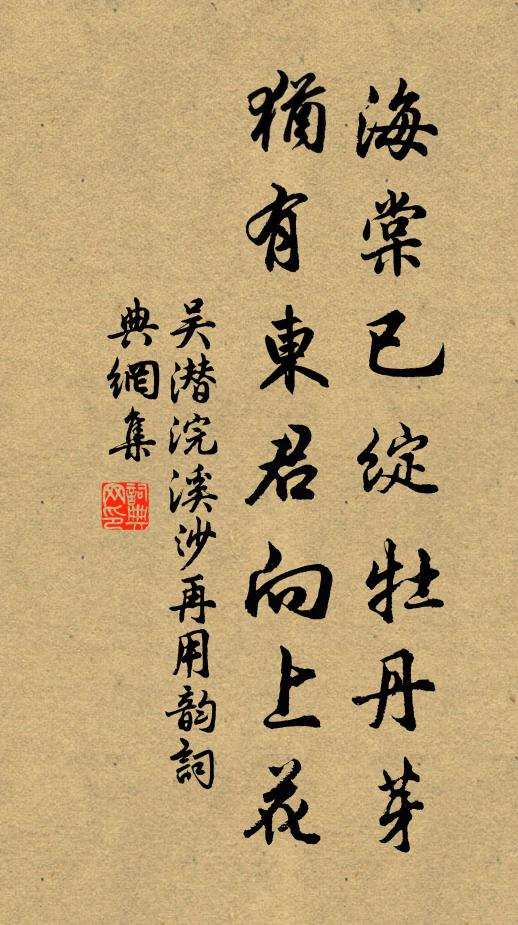 海棠已綻牡丹芽
猶有東君向上花
吴潜浣溪沙再用韵詞
典網集
詞典网印